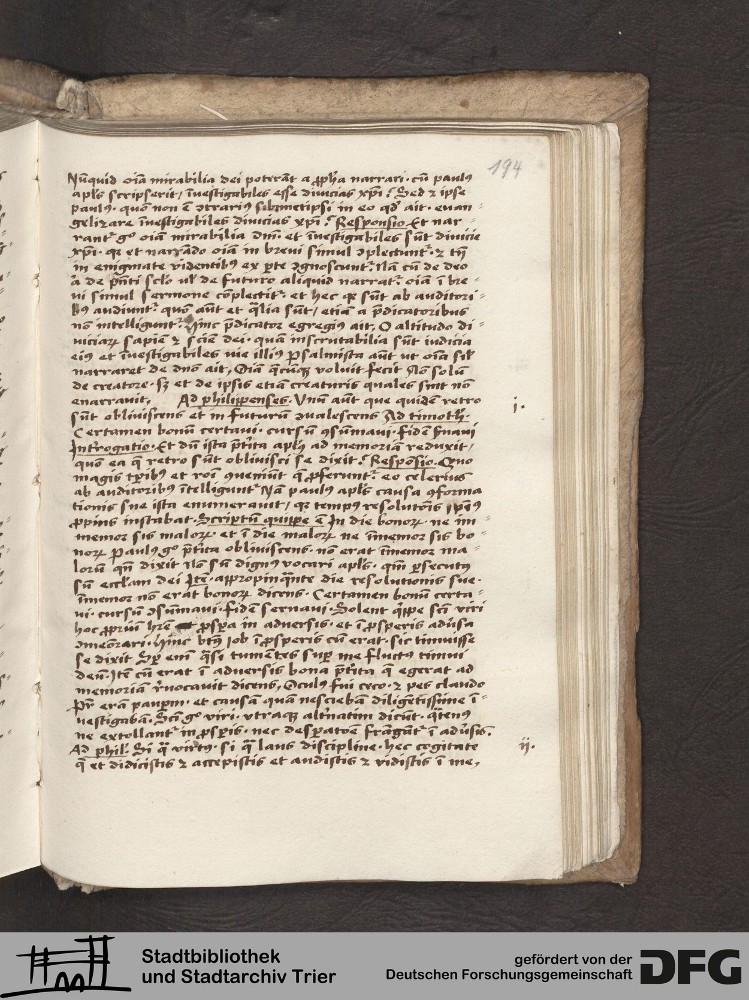 194
Nūquid oīa mirabilia dei poterāt a ꝓpha narrari · cū paulꝰ
apl̄s scripserit / īuestigabiles esse diuicias xp̄i ? Sed ⁊ ipse
paulꝰ · quō non ē ꝯtrariꝰ sibimetipsi in eo qd̕ ait · euan⸗
gelizare īuestigabiles diuicias xp̄i ? Responsio Et nar⸗
rant᷑ gͦ oīa mirabilia dn̄i · et īuestigabiles sūt diuicie
xp̄i · qꝛ et narrādo oīa in breui simul ꝯplectunt᷑ · ⁊ tn̄
in enigmate videntibꝰ ex ꝑte ꝯgnoscunt᷑. Nā cū de deo
de p̄nti sclo ul̕ de futuro aliquid narrat᷑ · oīa ī bre⸗
vi simul sermone cōplectit᷑ · et hec qͥ sūt ab auditori⸗
bꝰ audiunt᷑ · quō aūt et q̄lia sūt / etiā a p̄dicatoribus
nō intelligunt᷑. Hinc p̄dicator egregiꝰ ait, O altitudo di⸗
uiciaꝝ sapiē ⁊ sciē dei · quā inscrutabilia sūt iudicia
eiꝰ et īuestigabiles uie illiꝰ Psalmista aūt ut oīa sil̕
narraret de dn̄o ait, Oīa q̄cūqꝫ voluit fecit Nō solū
de creatore · sꝫ et de ipsis etiā creaturis quales sint nō
enarrauit, Ad philippenses. Vnū aūt que quidē retro
i.
sūt obliuiscens et in futurū ꝯualescens Ad timoth.
Certamen bonū certaui · cursū ꝯsūmaui · fidē ẜuaui
Int̕rogatio. Et dū ista p̄tita apl̄s ad memoriā reduxit /
quō ea q̄ retro sūt obliuisci se dixit ? Responsio. Quo
magis t̕ribꝰ et roī ꝯueniūt q̄ ꝓferunt᷑ · eo celerius
ab auditoribꝰ ītelligunt᷑ Nā paulꝰ apl̄s causa ꝯforma
tionis sue ista enumerauit / qꝛ tempꝰ resolutōis
ꝓpius instabat. Scriptū quippe ē In die bonoꝝ · ne im⸗
memor sis maloꝝ · et ī die maloꝝ ne īmemor sis bo⸗
noꝝ Paulꝰ gͦ p̄tita obliuiscens · nō erat īmemor ma⸗
lorū qn̄ dixit Nō sū dignꝰ vocari apl̄s · qm̄ ꝑsecutꝰ
sū eccl̄iam dei Ite · appropinq̄nte die resolutionis sue ·
īmemor nō erat bonoꝝ dicens · Certamen bonū certa⸗
ui · cursū ꝯsūmaui · fidē seruaui · Solent q̄ppe scī viri
hoc ꝓpriū hr̄e ꝓspa in aduersis · et ī ꝓsperis adūsa
ꝯmeōrari · Hinc btūs Job ī ꝓsperis cū erat · sic timuisse
se dixit Sꝑ enī q̄si tumētes suꝑ me fluctꝰ timui
deū. Itē cū erat ī aduersis bona p̄tita q̄ egerat ad
memoriā r̕uocauit dicens, Oculꝰ fui ceco · ⁊ pes claudo
Pr̄ erā pauꝑm · et causā quā nesciebā diligētissime ī⸗
uestigabā. Scī gͦ viri · vtraqꝫ alt̕natim dicūt · q̄tenꝰ
ne extollant᷑ in ꝓsꝑis · nec desꝑatoē frāgāt᷑ ī adūsis.
Ad phil. Si q̄ virtꝰ · si q̄ laus discipline · hec cogitate
ii.
q̄ et didicistis ⁊ accepistis et audistis ⁊ vidistis ī me,
Stadtbibliothek
und Stadtarchiv Trier
gefördert von der
Deutschen Forschungsgemeinschaft
DFG